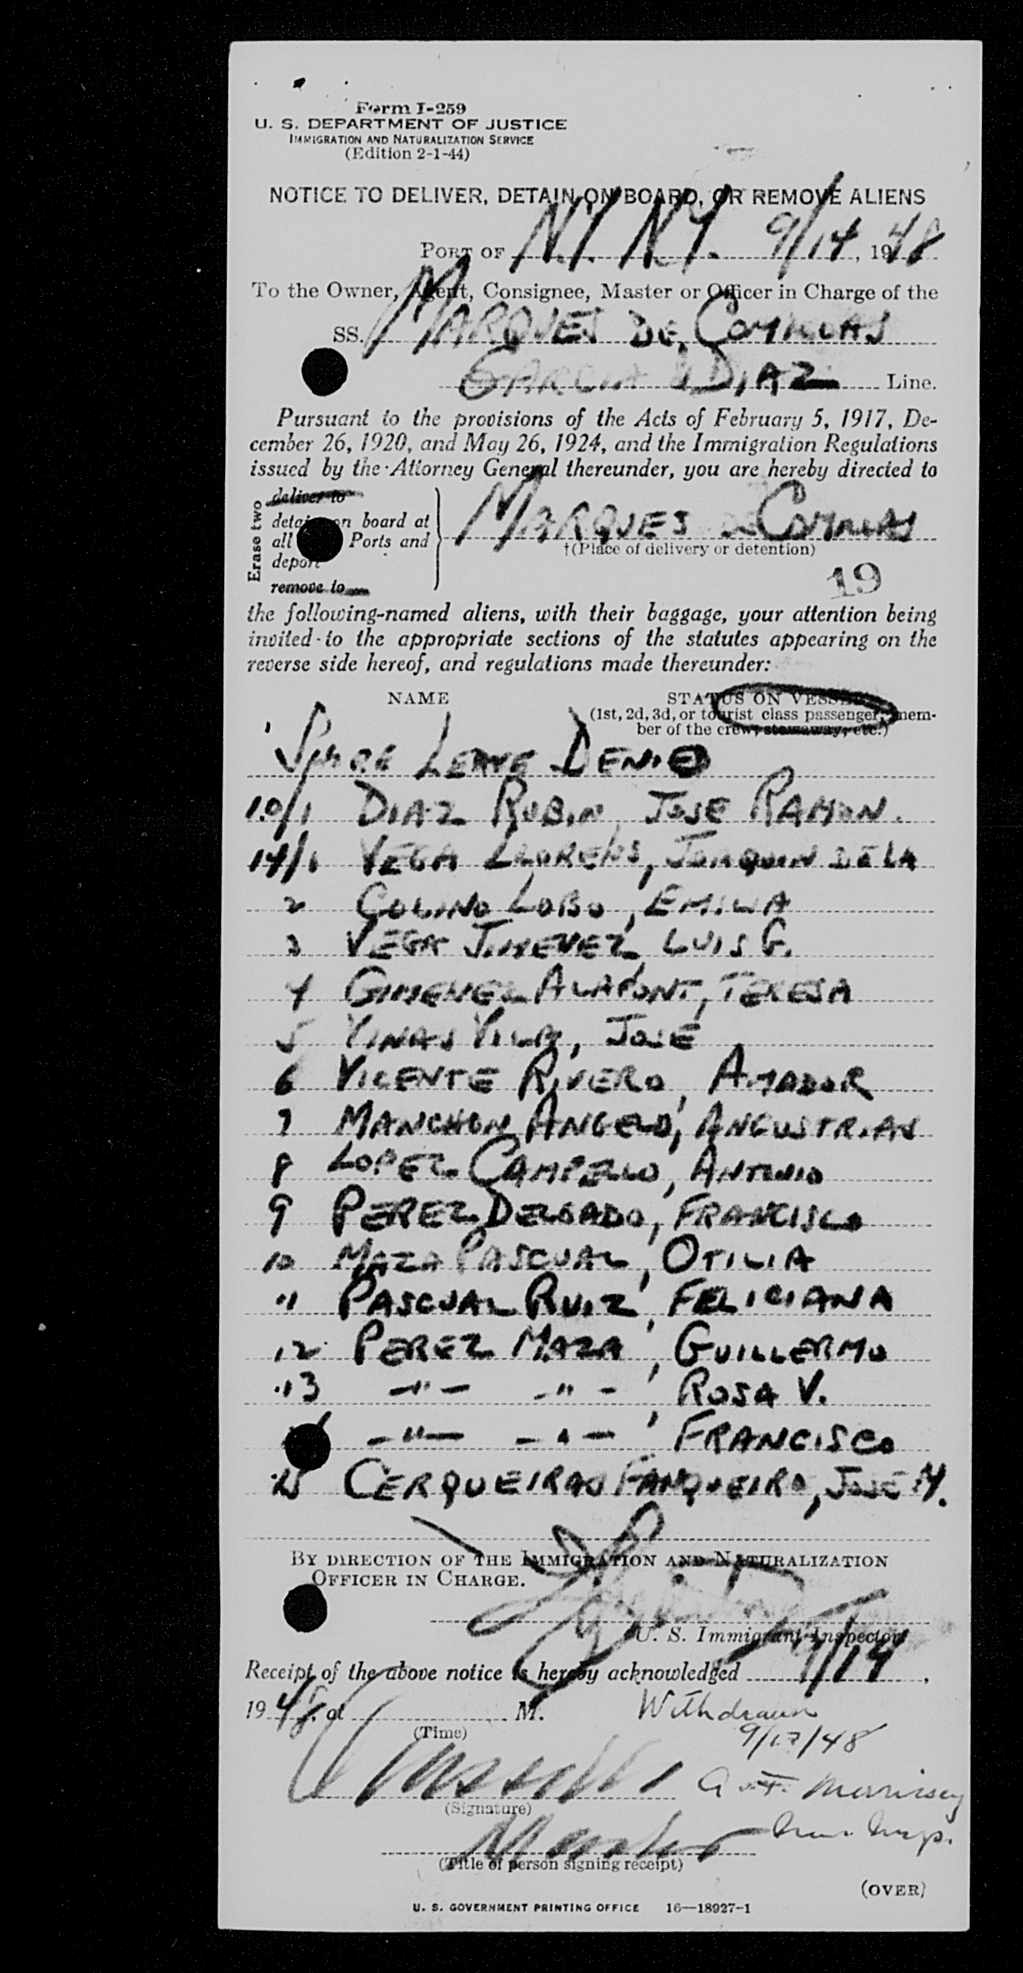 Form I-259
U. S. DEPARTMENT OF JUSTICE
IMMIGRATION AND NATURALIZATION SERVICE
(Edition 2-1-44)
NOTICE TO DELIVER, DETAIN ON BOARD, OR REMOVE ALIENS
PORT OF N.Y. N.Y. 9/14, 1948
To the Owner, Agent, Consignee, Master or Officer in Charge of the
SS. MARQUES DE COMILLAS
GARCIA & DIAZ Line.
Pursuant to the provisions of the Acts of February 5, 1917, De-
cember 26, 1920, and May 26, 1924, and the Immigration Regulations
issued by the Attorney General thereunder, you are hereby directed to
Erase two
deliver to
detain on board at
all Ports and
deport
remove to
MARQUES DE COMILLAS
†(Place of delivery or detention)
19
the following-named aliens, with their baggage, your attention being
invited to the appropriate sections of the statutes appearing on the
reverse side hereof, and regulations made thereunder:
NAME STATUS ON VESSEL
(1st, 2d, 3d, or tourist class passenger, mem-
ber of the crew, stowaway, etc.)
SHORE LEAVE DENIED
10/1 DIAZ RUBIN JOSE RAMON.
14/1 VEGA LLORENS, JOAQUIN DE LA
2 COLINO LOBO, EMILIA
3 VEGA JIMENEZ, LUIS G.
4 GIMENEZ ALAPONT, TERESA
5 VINAS VILA, JOSE
6 VICENTE RIVERO, AMADOR
7 MANCHON ANGELO, ANGUSTRIAS
8 LOPEZ CAMPELLO, ANTONIO
9 PEREZ DELGADO, FRANCISCO
10 MAZA PASCUAL, OTILIA
11 PASCUAL RUIZ, FELICIANA
12 PEREZ MAZA, GUILLERMO
13 -"- -"-, ROSA V.
-"- -"-, FRANCISCO
15 CERQUEIRAS FANQUEIRO, JOSE M.
BY DIRECTION OF THE IMMIGRATION AND NATURALIZATION
OFFICER IN CHARGE.
U. S. Immigrant Inspector
Receipt of the above notice is hereby acknowledged 9/14,
1948, at M.
(Time)
Withdrawn
9/17/48
Morrissey
(Signature)
Imm. Insp.
Master
(Title of person signing receipt)
(OVER)
U. S. GOVERNMENT PRINTING OFFICE 16—18927-1